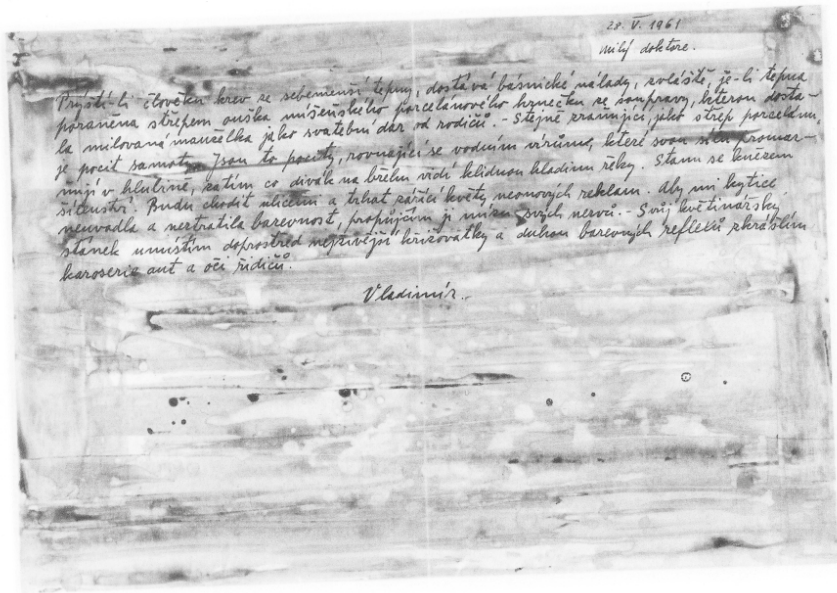 28. V. 1961
Milý doktore.
Prýští-li člověku krev ze sebemenší tepny, dostává básnické nálady, zvláště, je-li tepna
poraněna střepem ouška míšeňského porcelánového hrnečku ze soupravy, kterou dosta-
la milovaná manželka jako svatební dar od rodičů. - Stejně zraňující, jako střep porcelánu,
je pocit samoty. Jsou to pocity, rovnající se vodním vírům, které svou sílu promar-
ňují v hlubině, zatím co divák na břehu vidí klidnou hladinu řeky. Stanu se knězem
šílenství. Budu chodit ulicemi a trhat zářící květy neonových reklam. Aby mi kytice
neuvadla a neztratila barevnost, propůjčím jí mízu svých nervů. - Svůj květinářský
stánek umístím doprostřed nejživější křižovatky a duhou barevných reflexů zkrášlím
karoserie aut a oči řidičů.
Vladimír.